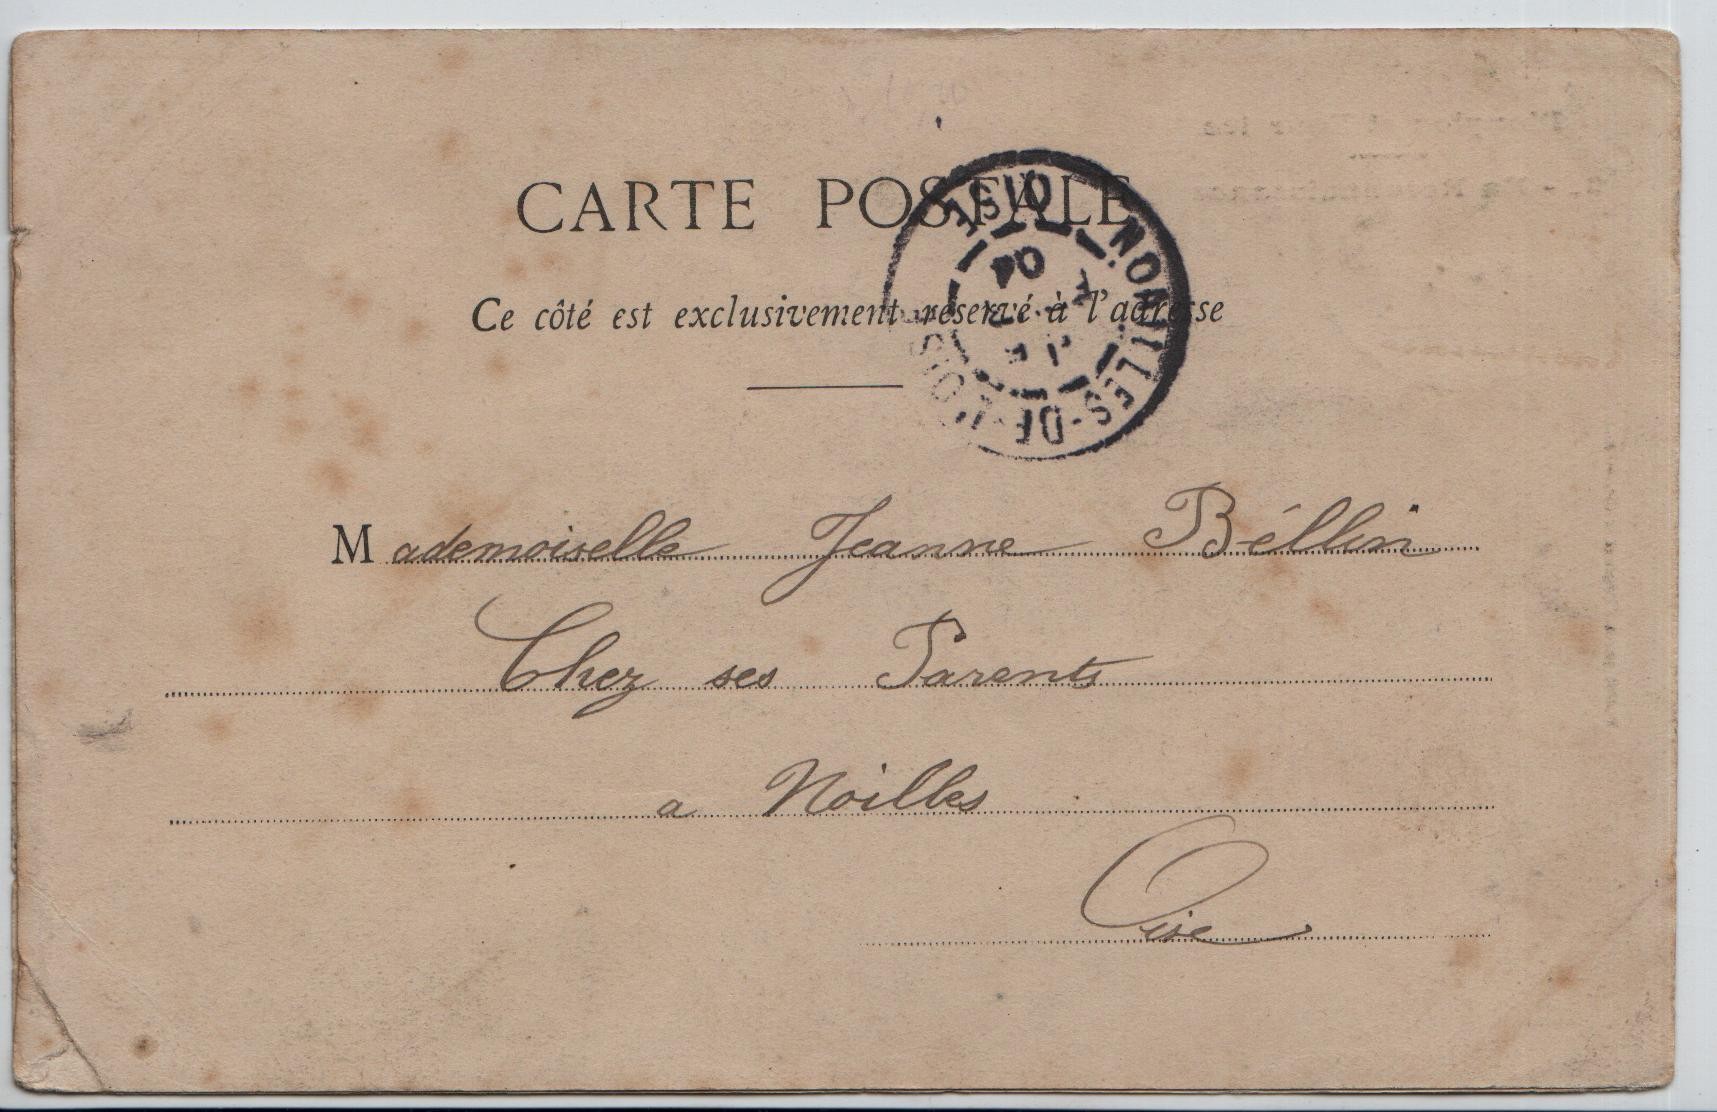 CARTE POSTALE
Ce côté est exclusivement réservé à l'adresse
NOAILLES-DE-L'OISE
OISE
04
Mademoiselle Jeanne Béllin
Chez ses Parents
a Noilles
Oise